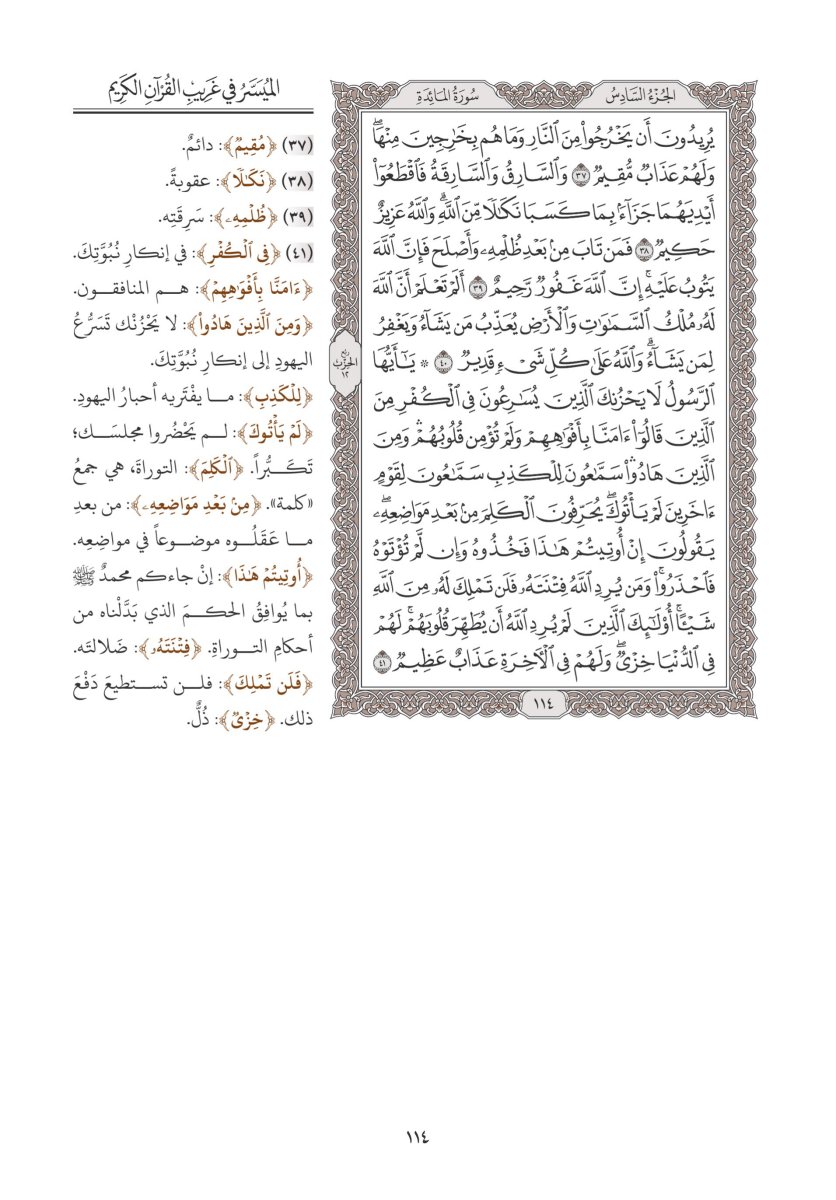 الجُزْءُ السَّادِسُ
سُورَةُ المَائِدَةِ
يُرِيدُونَ أَن يَخْرُجُواْ مِنَ ٱلنَّارِ وَمَا هُم بِخَٰرِجِينَ مِنْهَاۖ
وَلَهُمْ عَذَابٌ مُّقِيمٌ ٣٧ وَٱلسَّارِقُ وَٱلسَّارِقَةُ فَٱقْطَعُوٓاْ
أَيْدِيَهُمَا جَزَآءَۢ بِمَا كَسَبَا نَكَٰلًا مِّنَ ٱللَّهِۗ وَٱللَّهُ عَزِيزٌ
حَكِيمٌ ٣٨ فَمَن تَابَ مِنۢ بَعْدِ ظُلْمِهِۦ وَأَصْلَحَ فَإِنَّ ٱللَّهَ
يَتُوبُ عَلَيْهِۚ إِنَّ ٱللَّهَ غَفُورٌ رَّحِيمٌ ٣٩ أَلَمْ تَعْلَمْ أَنَّ ٱللَّهَ
لَهُۥ مُلْكُ ٱلسَّمَٰوَٰتِ وَٱلْأَرْضِ يُعَذِّبُ مَن يَشَآءُ وَيَغْفِرُ
لِمَن يَشَآءُۗ وَٱللَّهُ عَلَىٰ كُلِّ شَىْءٍ قَدِيرٌ ٤٠ * يَٰٓأَيُّهَا
ٱلرَّسُولُ لَا يَحْزُنكَ ٱلَّذِينَ يُسَٰرِعُونَ فِى ٱلْكُفْرِ مِنَ
ٱلَّذِينَ قَالُوٓاْ ءَامَنَّا بِأَفْوَٰهِهِمْ وَلَمْ تُؤْمِن قُلُوبُهُمْۛ وَمِنَ
ٱلَّذِينَ هَادُواْۛ سَمَّٰعُونَ لِلْكَذِبِ سَمَّٰعُونَ لِقَوْمٍ
ءَاخَرِينَ لَمْ يَأْتُوكَۖ يُحَرِّفُونَ ٱلْكَلِمَ مِنۢ بَعْدِ مَوَاضِعِهِۦۖ
يَقُولُونَ إِنْ أُوتِيتُمْ هَٰذَا فَخُذُوهُ وَإِن لَّمْ تُؤْتَوْهُ
فَٱحْذَرُواْۚ وَمَن يُرِدِ ٱللَّهُ فِتْنَتَهُۥ فَلَن تَمْلِكَ لَهُۥ مِنَ ٱللَّهِ
شَيْـًٔاۚ أُوْلَٰٓئِكَ ٱلَّذِينَ لَمْ يُرِدِ ٱللَّهُ أَن يُطَهِّرَ قُلُوبَهُمْۚ لَهُمْ
فِى ٱلدُّنْيَا خِزْىٌۖ وَلَهُمْ فِى ٱلْءَاخِرَةِ عَذَابٌ عَظِيمٌ ٤١
١١٤
رُبع
الحِزْب
١٢
المُيَسَّرُ في غَرِيبِ القُرْآنِ الكَرِيم
(٣٧) ﴿مُقِيمٌ﴾: دائمٌ.
(٣٨) ﴿نَكَٰلًا﴾: عقوبةً.
(٣٩) ﴿ظُلْمِهِۦ﴾: سَرِقَتِه.
(٤١) ﴿فِى ٱلْكُفْرِ﴾: في إنكارِ نُبُوَّتِكَ.
﴿ءَامَنَّا بِأَفْوَٰهِهِمْ﴾: هـم المنافقـون.
﴿وَمِنَ ٱلَّذِينَ هَادُواْ﴾: لا يَحْزُنْك تَسَرُّعُ
اليهودِ إلى إنكارِ نُبُوَّتِكَ.
﴿لِلْكَذِبِ﴾: مـا يفْتَريه أحبارُ اليهودِ.
﴿لَمْ يَأْتُوكَ﴾: لـم يَحْضُروا مجلسَـك؛
تَكَـبُّراً. ﴿ٱلْكَلِمَ﴾: التوراةَ، هي جمعُ
«كلمة». ﴿مِنۢ بَعْدِ مَوَاضِعِهِۦ﴾: من بعدِ
مـا عَقَلُـوه موضـوعـاً في مواضِعِه.
﴿أُوتِيتُمْ هَٰذَا﴾: إنْ جاءكم محمدٌ ﷺ
بما يُوافِقُ الحكـمَ الذي بَدَّلْناه من
أحكامِ التـوراةِ. ﴿فِتْنَتَهُۥ﴾: ضَلالتَه.
﴿فَلَن تَمْلِكَ﴾: فلـن تستطيعَ دَفْعَ
ذلك. ﴿خِزْىٌ﴾: ذُلٌّ.
١١٤